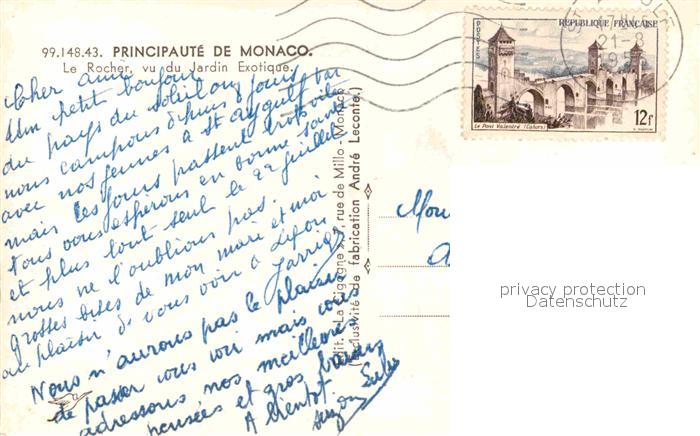 99.148.43. PRINCIPAUTÉ DE MONACO.
Le Rocher, vu du Jardin Exotique.
Cher ami
Un petit bonjour
du pays du soleil
nous campons 8 jours
avec nos jeunes à St Aygulf Var
mais les jours passent trop vite
tous vous espérons en bonne santé
et plus tout seul le 22 juillet
nous ne l'oublions pas.
Grosses bises de mon mari et moi
au plaisir d'vous voir à Lyon
Nous n'aurons pas le plaisir
de passer vous voir mais vous
adressons nos meilleures
pensées et gros baisers
A bientôt
Édit. "La Cigogne", rue de Millo - Monaco
(Exclusivité de fabrication André Leconte)
REPUBLIQUE FRANÇAISE
POSTES
12f
Le Pont Valentré (Cahors)
21-8
Mou
privacy protection
Datenschutz